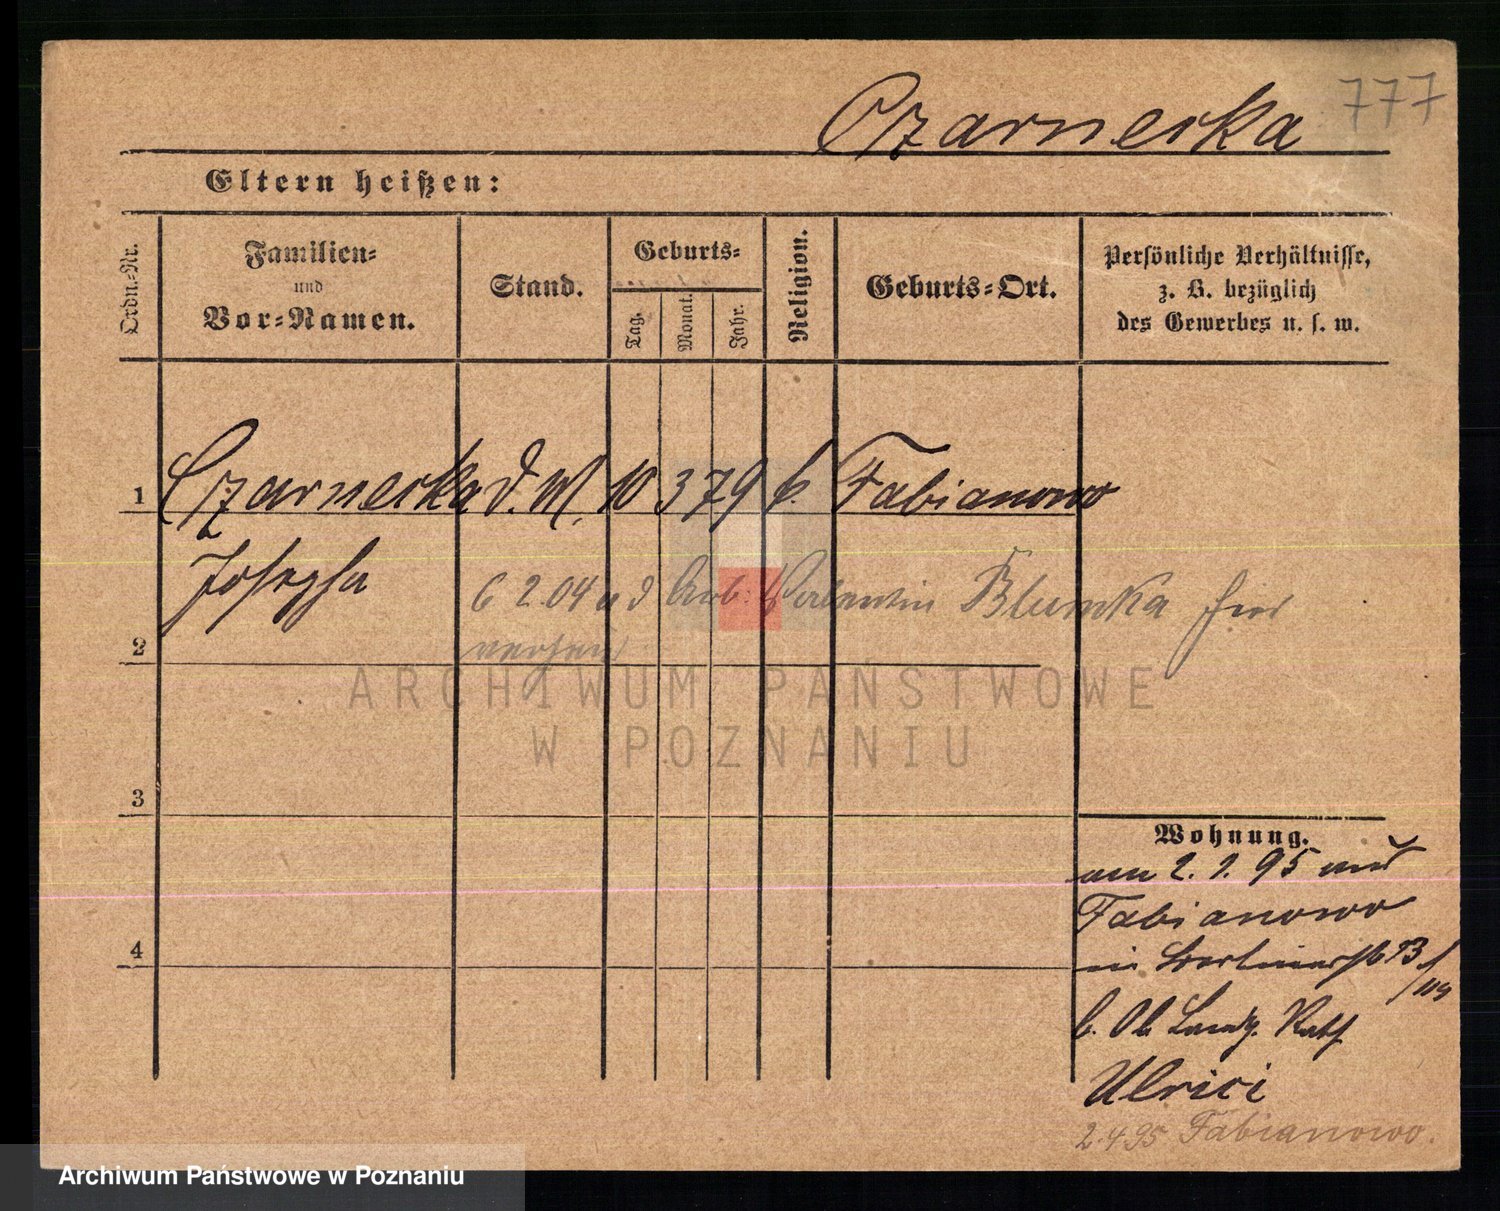 777
Czarnecka
Eltern heißen:
Ordn.-Nr.
Familien-
und
Vor-Namen.
Stand.
Geburts-
Tag.
Monat.
Jahr.
Religion.
Geburts-Ort.
Persönliche Verhältnisse,
z. B. bezüglich
des Gewerbes u. s. w.
1 Czarnecka d. M. 10 3 79 k. Fabianowo
Josepha
6 2.04 a d Arb: Valentin Blumka hier
2
ARCHIWUM PAŃSTWOWE
W POZNANIU
3
Wohnung.
am 2. 1. 95 aus
Fabianowo
4
in Berlinerstr 13
b. Ob Landg. Rath
Ulrici
2.4 95 Fabianowo.
Archiwum Państwowe w Poznaniu